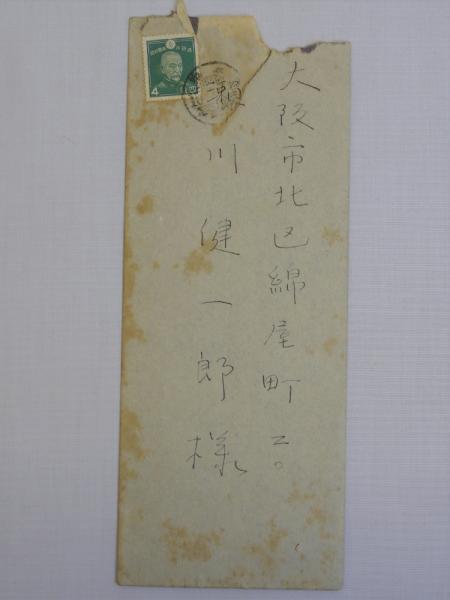 大阪市北区綿屋町二〇
瀬川健一郎様
4